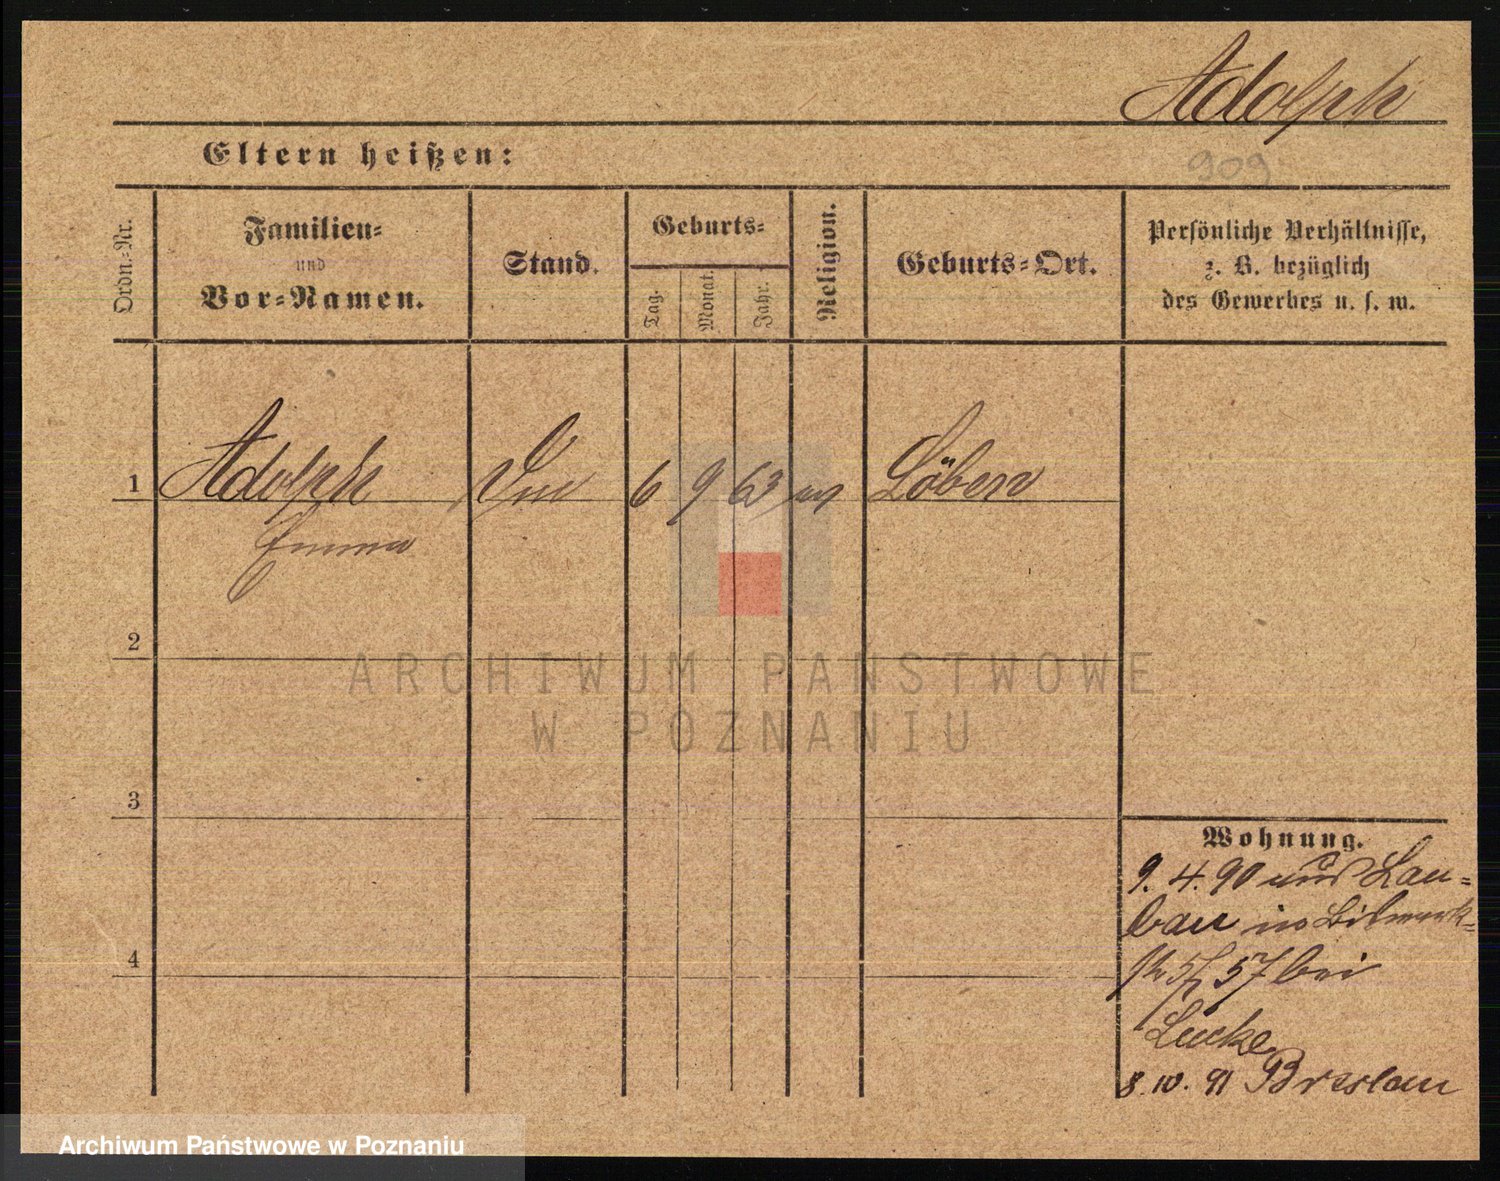 Adolph
909
Eltern heißen:
Ordn.-Nr.
Familien-
und
Vor-Namen.
Stand.
Geburts-
Tag.
Monat.
Jahr.
Religion.
Geburts-Ort.
Persönliche Verhältnisse,
z. B. bezüglich
des Gewerbes u. s. w.
1 Adolph 6 9 63 Löben
Emma
2
3
4
Wohnung.
9. 4. 90 aus Lau=
ban in Bismark=
57 bei
Lucke
8. 10. 91 Breslau
ARCHIWUM PAŃSTWOWE
W POZNANIU
Archiwum Państwowe w Poznaniu